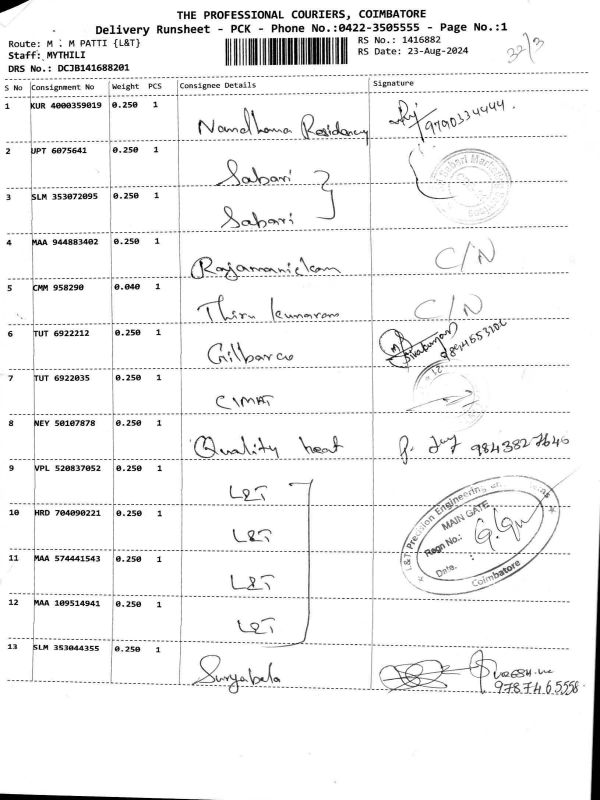 THE PROFESSIONAL COURIERS, COIMBATORE
Delivery Runsheet - PCK - Phone No.:0422-3505555 - Page No.:1
Route: M . M PATTI {L&T}
RS No.: 1416882
Staff: MYTHILI
RS Date: 23-Aug-2024
32/3
DRS No.: DCJB141688201
S No Consignment No Weight PCS Consignee Details Signature
1 KUR 4000359019 0.250 1
Nandhana Residency
9790334444.
2 UPT 6075641 0.250 1
Sabari
3 SLM 353072095 0.250 1
Sabari
4 MAA 944883402 0.250 1
Rajamanickam C/N
5 CMM 958290 0.040 1
Thiru kumaran C/N
6 TUT 6922212 0.250 1
Gilbarco
7 TUT 6922035 0.250 1
CIMAT
8 NEY 50107878 0.250 1
Quality heat 9843827646
9 VPL 520837052 0.250 1
L&T
10 HRD 704090221 0.250 1
L&T
L&T Precision Engineering
MAIN GATE
Regn No.:
Date. :
Coimbatore
11 MAA 574441543 0.250 1
L&T
12 MAA 109514941 0.250 1
L&T
13 SLM 353044355 0.250 1
Suryabala
9787465558